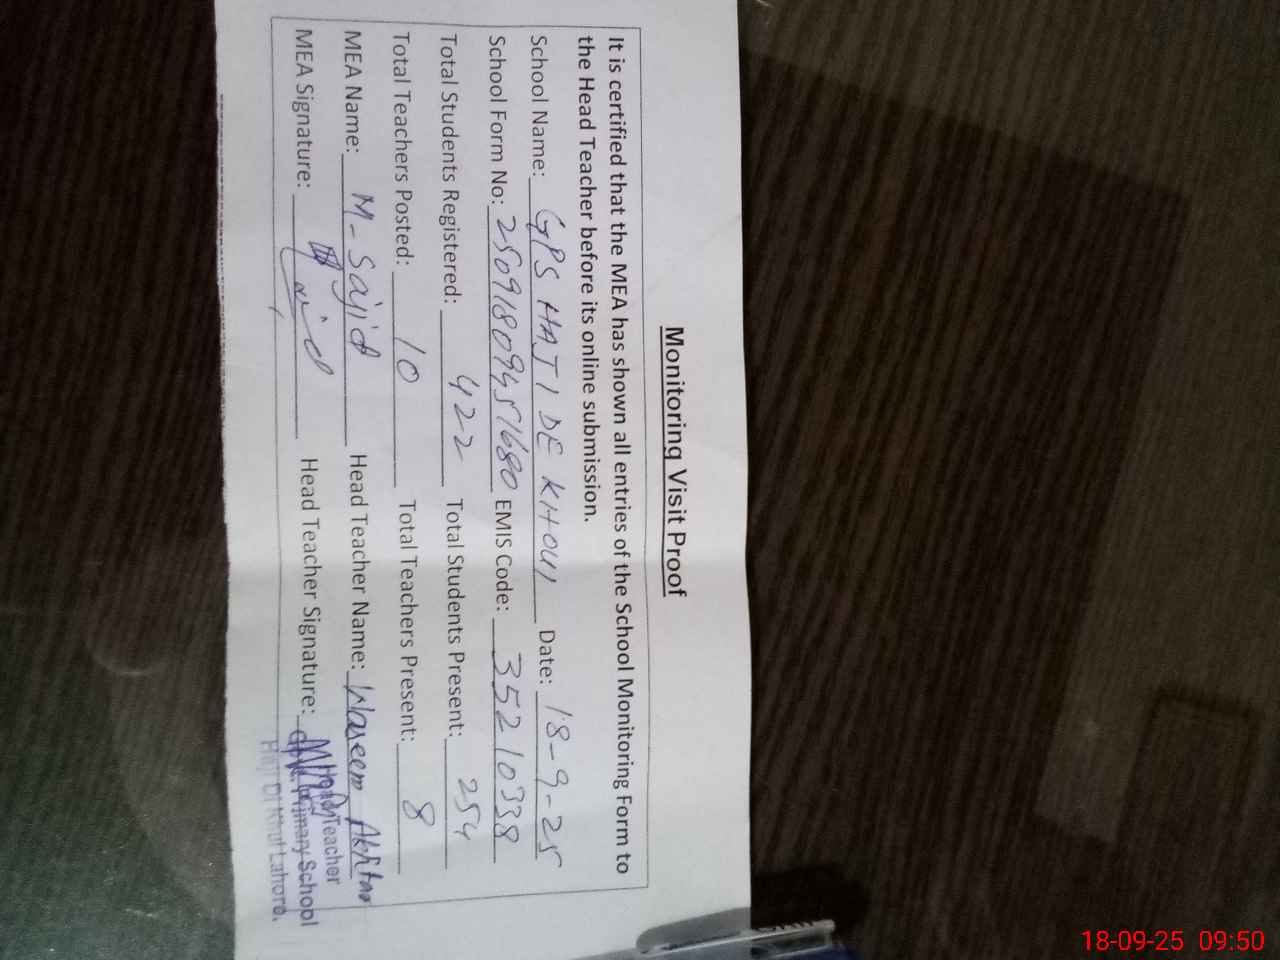 Monitoring Visit Proof
It is certified that the MEA has shown all entries of the School Monitoring Form to
the Head Teacher before its online submission.
School Name: GPS HAJI DE KHOUI Date: 18-9-25
School Form No: 250918094551680 EMIS Code: 35210338
Total Students Registered: 422 Total Students Present: 254
Total Teachers Posted: 10 Total Teachers Present: 8
MEA Name: M-Sajid Head Teacher Name: Waseem Akhtar
MEA Signature: Sajid Head Teacher Signature:
Head Teacher
Primary School
Lahore.
18-09-25 09:50